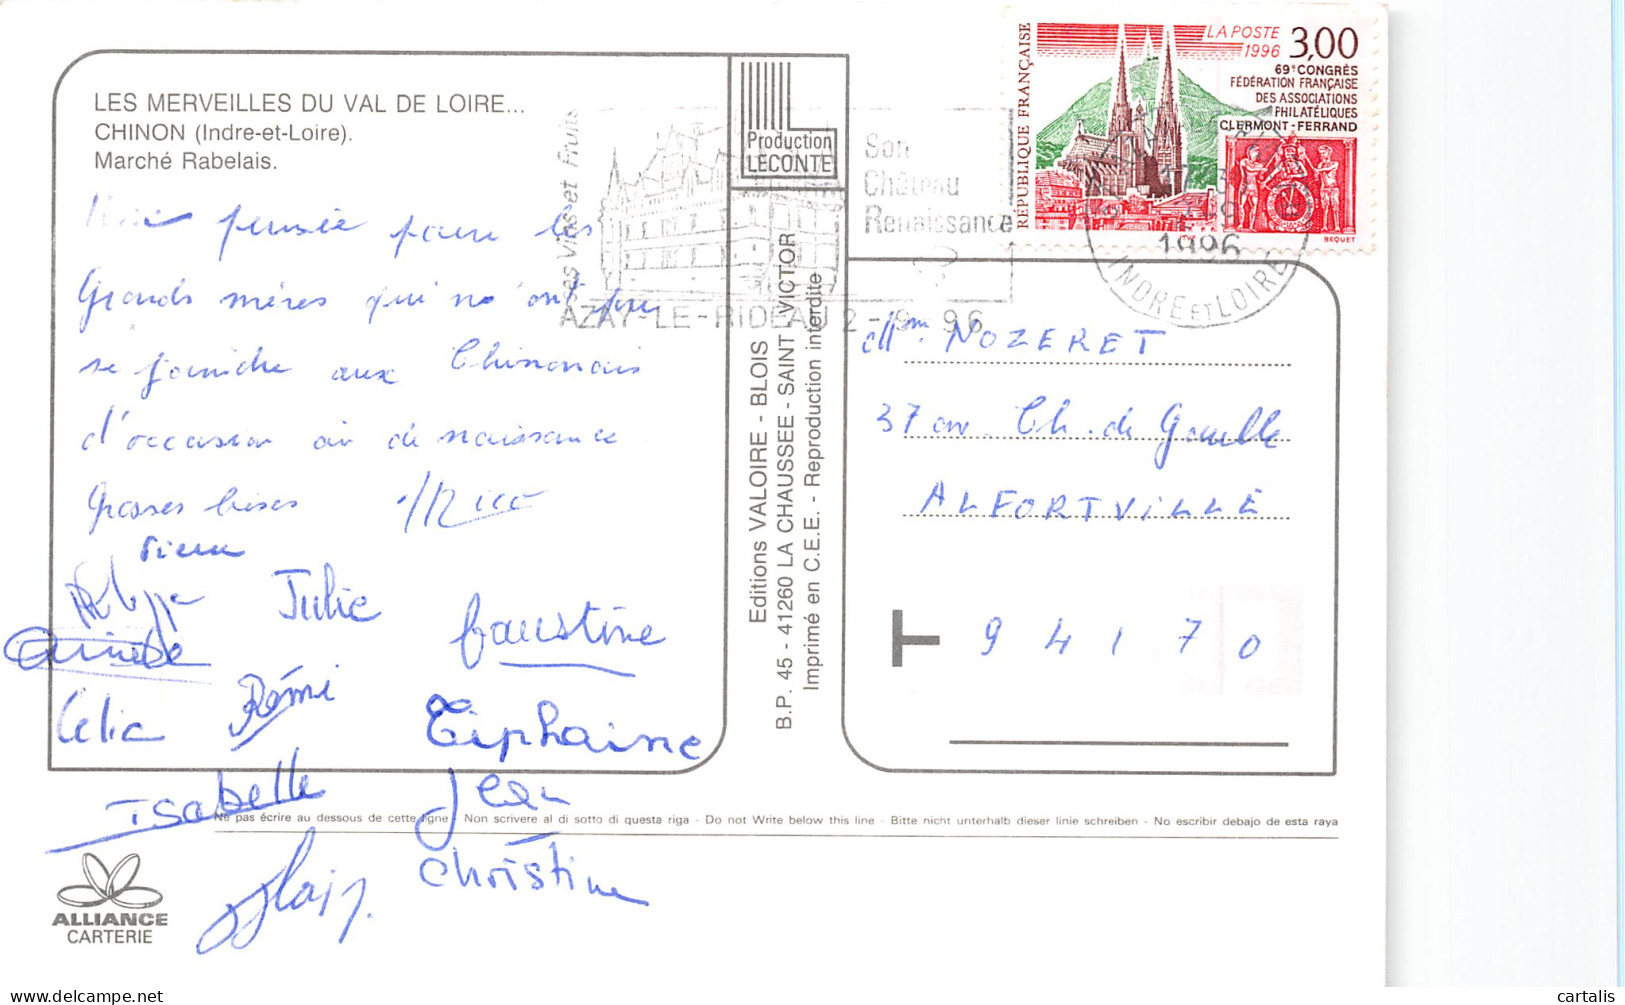 LES MERVEILLES DU VAL DE LOIRE...
CHINON (Indre-et-Loire).
Marché Rabelais.
pensée pour les
Grands mères qui n'ont pu
se joindre aux Chinonais
d'occasion ou de naissance
Grosses bises
Julie
Faustine
Célia Rémi
Tiphaine
Isabelle
Jean
Christine
Alain
ALLIANCE
CARTERIE
Ne pas écrire au dessous de cette ligne - Non scrivere al di sotto di questa riga - Do not Write below this line - Bitte nicht unterhalb dieser linie schreiben - No escribir debajo de esta raya
Production
LECONTE
Editions VALOIRE - BLOIS
B.P. 45 - 41260 LA CHAUSSEE - SAINT VICTOR
Imprimé en C.E.E. - Reproduction interdite
Ses Vins et Fruits
Son
Château
Renaissance
AZAY-LE-RIDEAU 2-9-96
1996
INDRE et LOIRE
RÉPUBLIQUE FRANÇAISE
LA POSTE
1996
3,00
69e CONGRÈS
FÉDÉRATION FRANÇAISE
DES ASSOCIATIONS
PHILATÉLIQUES
CLERMONT-FERRAND
BEQUET
Mme NOZERET
37 av. Ch. de Gaulle
ALFORTVILLE
94170
cartalis